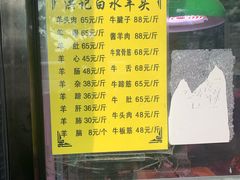 洪记白水羊头
羊头肉 65元/斤 牛腱子 88元/斤
羊 65元/斤 酱羊肉 88元/斤
羊 肚 65元/斤
羊 心 45元/斤 牛窝骨筋 68元/斤
羊 肠 48元/斤 牛 舌 68元/斤
羊 蹄 30元/斤 牛蹄筋 65元/斤
羊 杂 36元/斤 牛 肚 65元/斤
羊 肝 38元/斤 牛头肉 48元/斤
羊 肺 30元/斤
羊 脑 8元/个 牛板筋 48元/斤